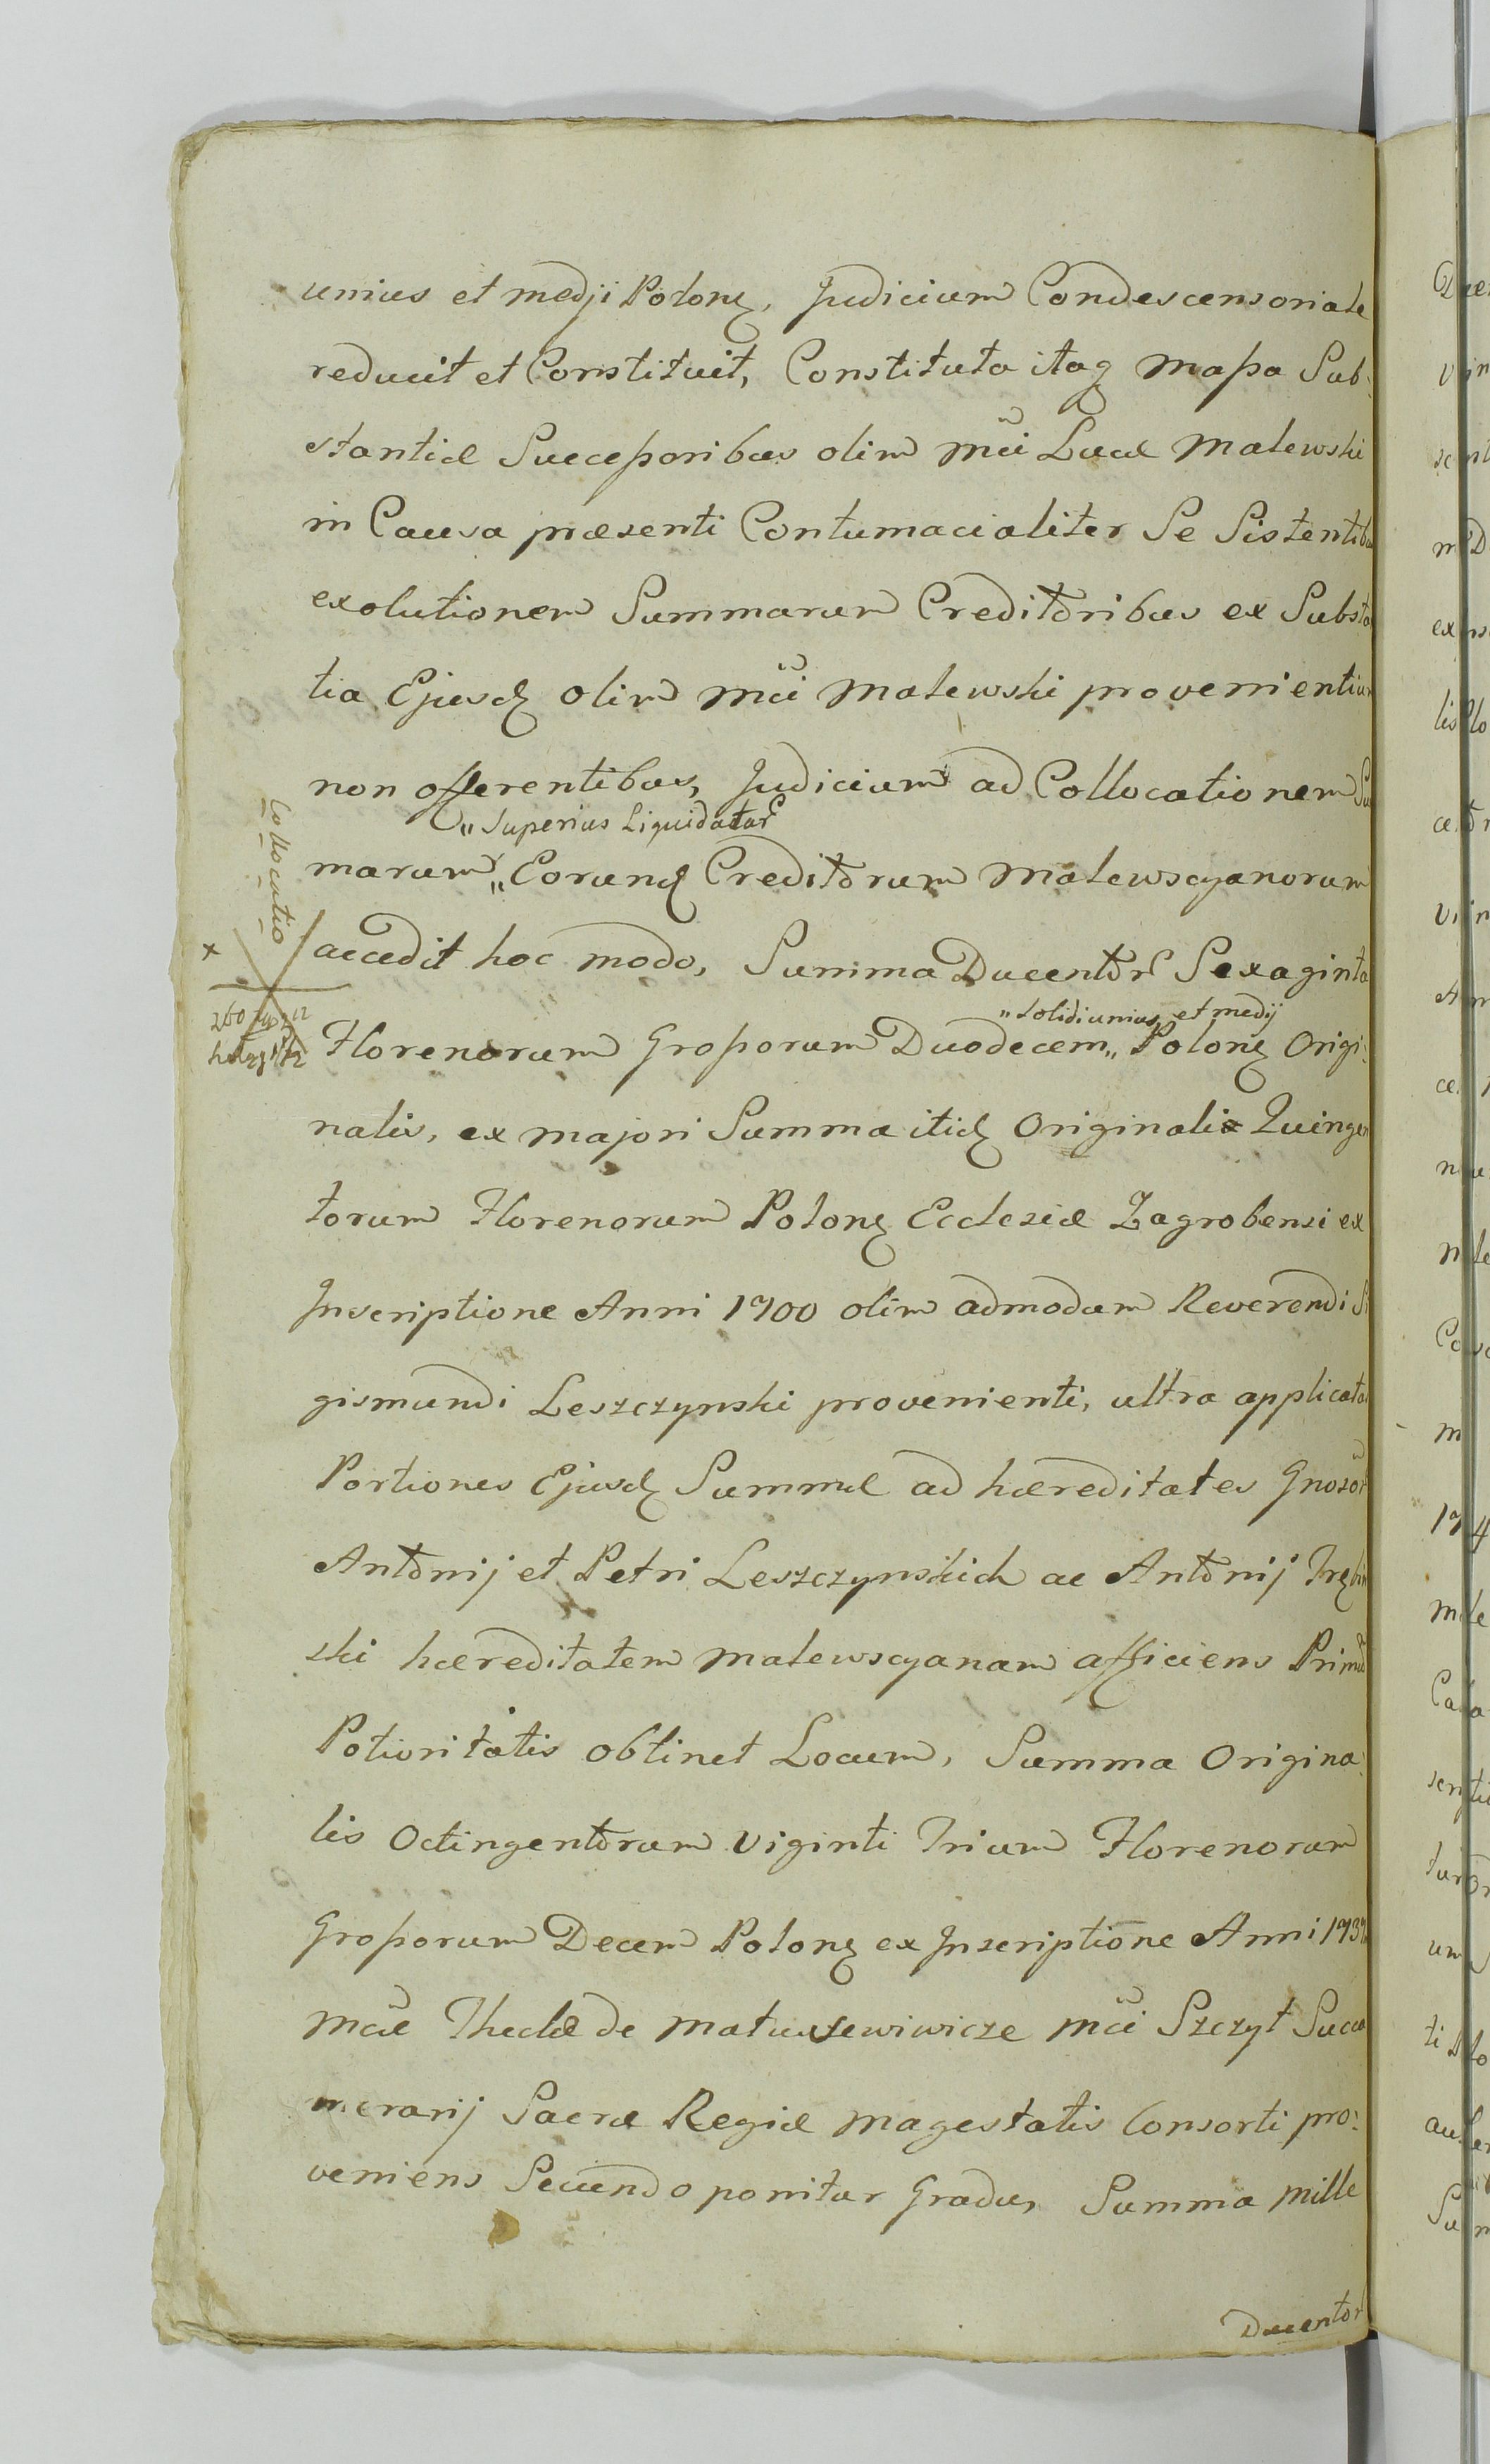 unius et medji Polonq, Judicium Condescensoriale
reducit et Constituit, Constituta itaq Massa Sub:
stantiæ Successoribus olim Mci Lucæ Malewski
in Causa præsenti Contumacialiter Se Sistentibus
exolutionem Summarum Creditoribus ex Substa
tia Ejusd olim Mci Malewski provenientium
non offerentibus, Judicium ad Collocationem
"Superius Liquidatar
marum "Eorund Creditorum Malewscyanorum
Collocutio
accedit hoc modo, Summa Ducentor Sexaginta
x
260
"Solidi unius, et medij
Florenorum Grossorum Duodecem" Polonq Origi:
nalis, ex majori Summa itid Originali Quingen
torum Florenorum Polonq Ecclesiæ Zagrobensi ex
Inscriptione Anni 1700 olim admodum Reverendi Si
gismundi Leszczynski provenienti, ultra applicatas
Portiones Ejusd Summæ ad hæreditates Gnosor
Antonij et Petri Leszczynskich ac Antonij
ski hæreditatem Malewscyanam afficiens Primum
Potioritatis obtinet Locum, Summa Origina:
lis Octingentorum Viginti Trium Florenorum
Grossorum Decem Polonq ex Inscriptione Anni
Mcæ Theclæ de Matuszewiwicze Mci Szczyt Succa
merarij Sacræ Regiæ Magestatis Consorti pro:
veniens Secundo ponitur Gradu, Summa Mille
Ducentor